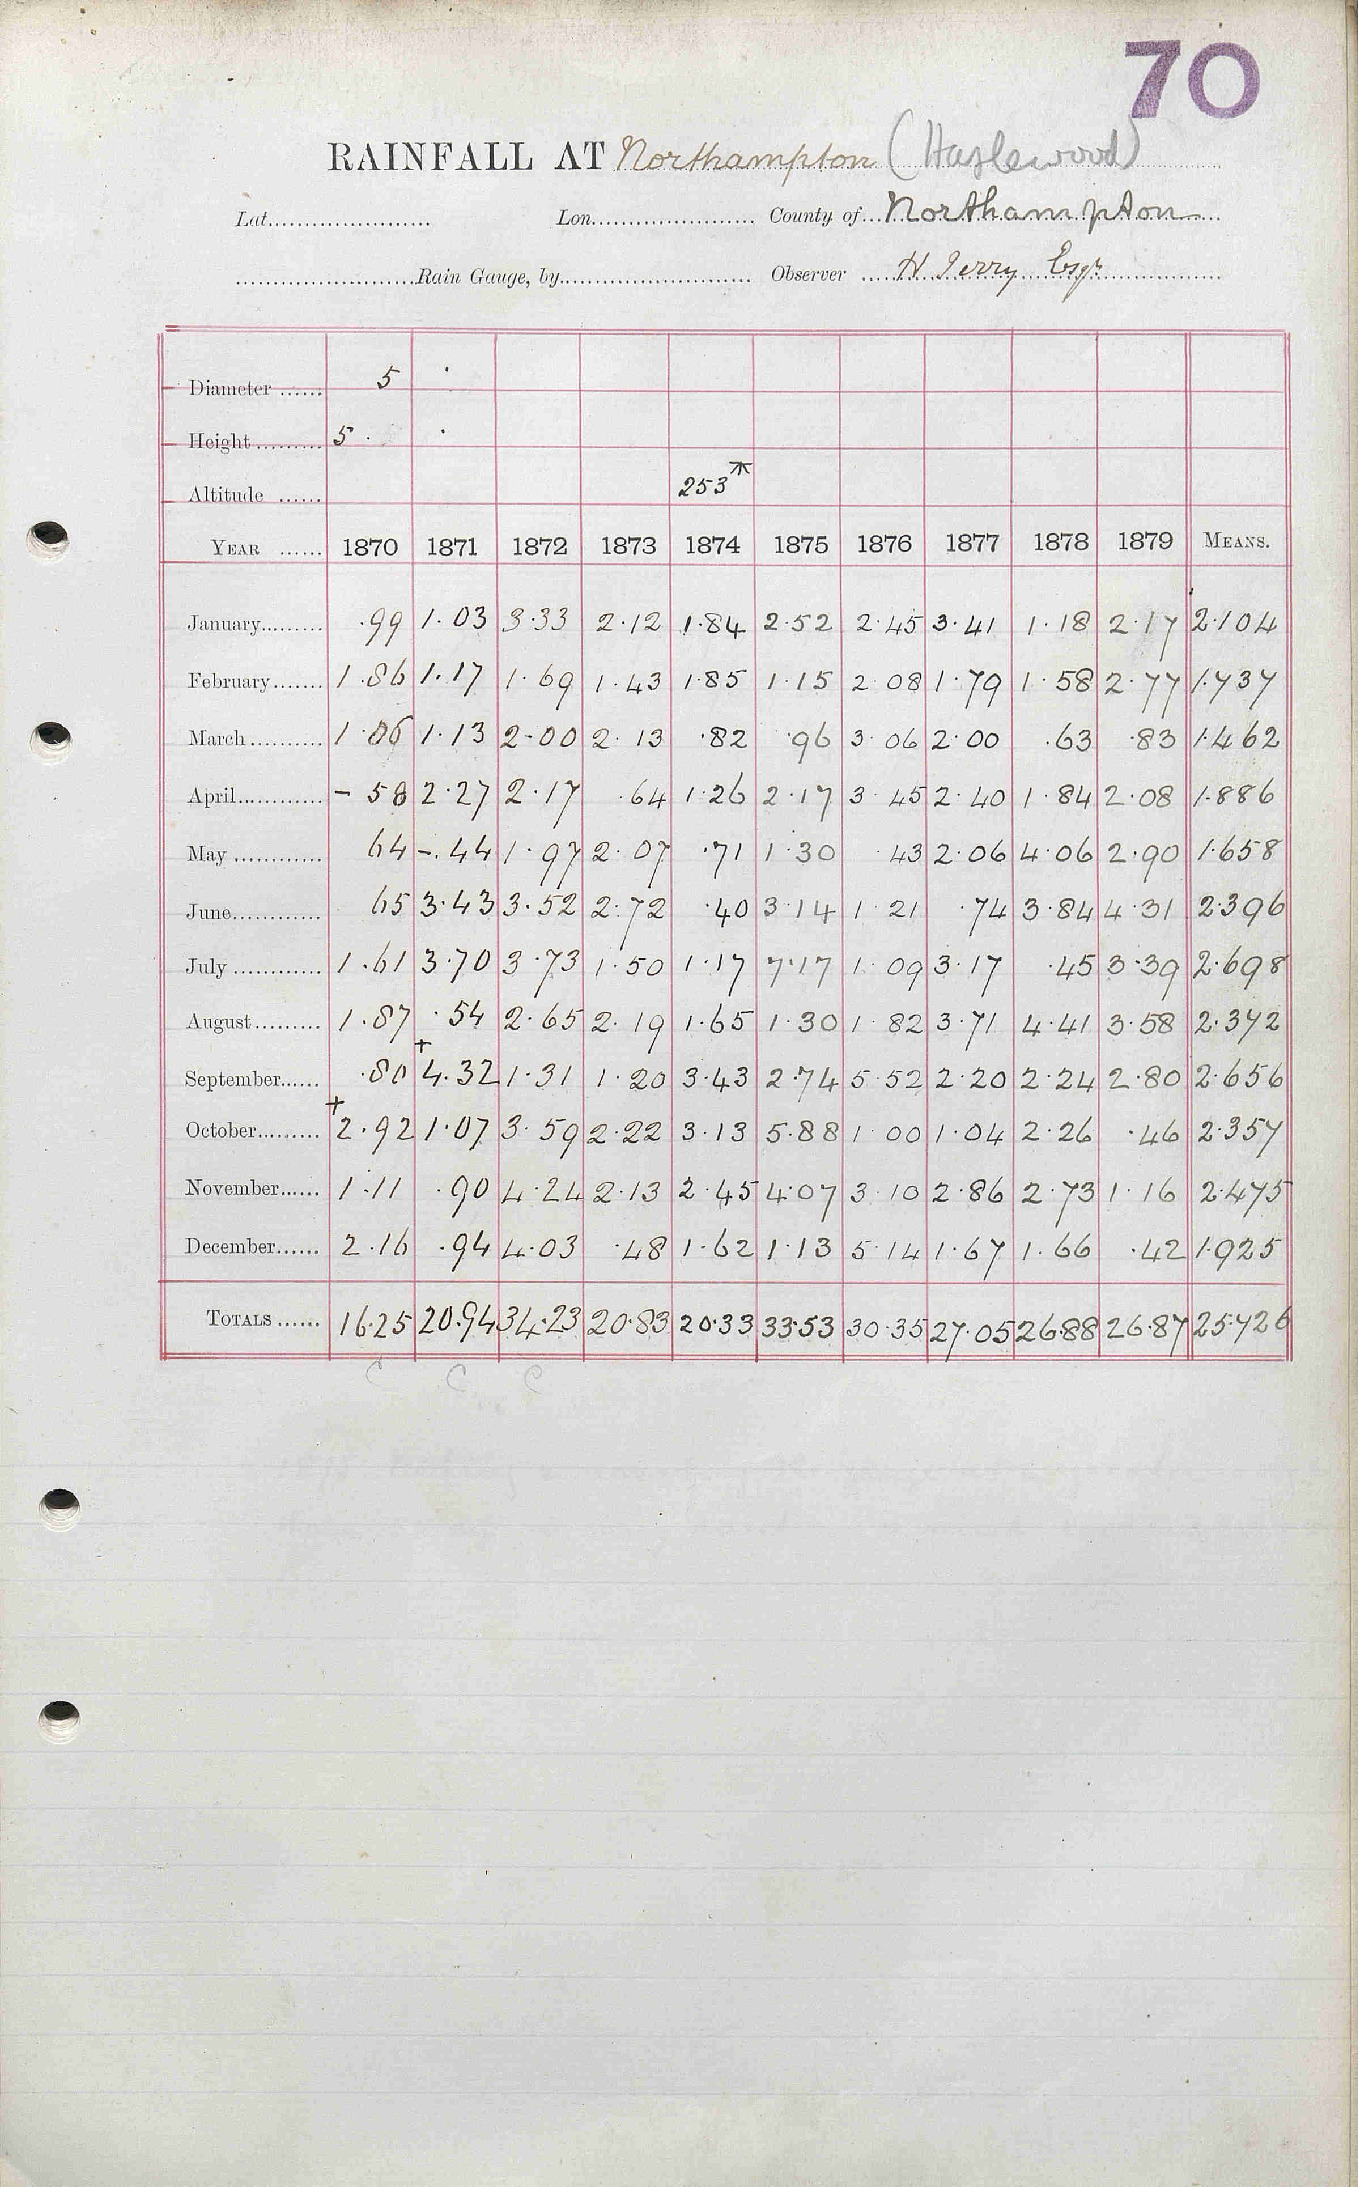 70
RAINFALL AT Northampton (Hazlewood)
Lat. Lon. County of Northampton
Rain Gauge, by Observer H Terry Esqr
Diameter 5
Height 5 ·
Altitude 253
YEAR 1870 1871 1872 1873 1874 1875 1876 1877 1878 1879 MEANS.
January ·99 1·03 3·33 2·12 1·84 2·52 2·45 3·41 1·18 2·17 2·104
February 1·86 1·17 1·69 1·43 1·85 1·15 2 08 1·79 1·58 2·77 1·737
March 1·06 1·13 2-00 2·13 ·82 ·96 3·06 2·00 ·63 ·83 1·462
April - 58 2·27 2·17 ·64 1·26 2·17 3 45 2·40 1·84 2·08 1·886
May 64 -·44 1·97 2·07 ·71 1·30 43 2·06 4·06 2·90 1·658
June 65 3·43 3·52 2·72 ·40 3·14 1 21 ·74 3·84 4·31 2·396
July 1·61 3·70 3·73 1·50 1·17 7·17 1·09 3·17 ·45 3·39 2·698
August 1·87 ·54 2·65 2·19 1·65 1·30 1 82 3·71 4·41 3·58 2·372
September ·80 +4·32 1·31 1·20 3·43 2·74 5 52 2·20 2·24 2·80 2·656
October +2·92 1·07 3·59 2·22 3·13 5·88 1 00 1·04 2·26 ·46 2·357
November 1·11 ·90 4·24 2·13 2·45 4·07 3·10 2·86 2·73 1·16 2·475
December 2·16 ·94 4·03 ·48 1·62 1·13 5·14 1·67 1·66 ·42 1·925
TOTALS 16·25 20·94 34·23 20·83 20·33 33·53 30·35 27·05 26·88 26·87 25·726
C C C